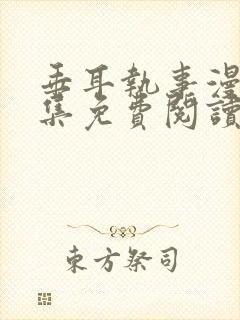 垂耳執事漫
集免費閱讀
東方祭司